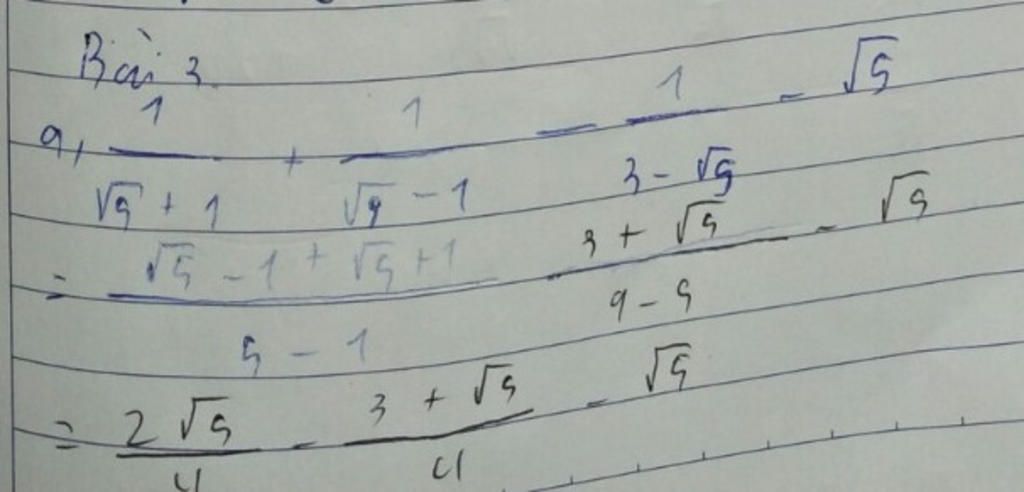 Bài 3
a, 1/(√5 + 1) + 1/(√5 - 1) - 1/(3 - √5) - √5
= (√5 - 1 + √5 + 1)/(5 - 1) - (3 + √5)/(9 - 5) - √5
= 2√5/4 - (3 + √5)/4 - √5